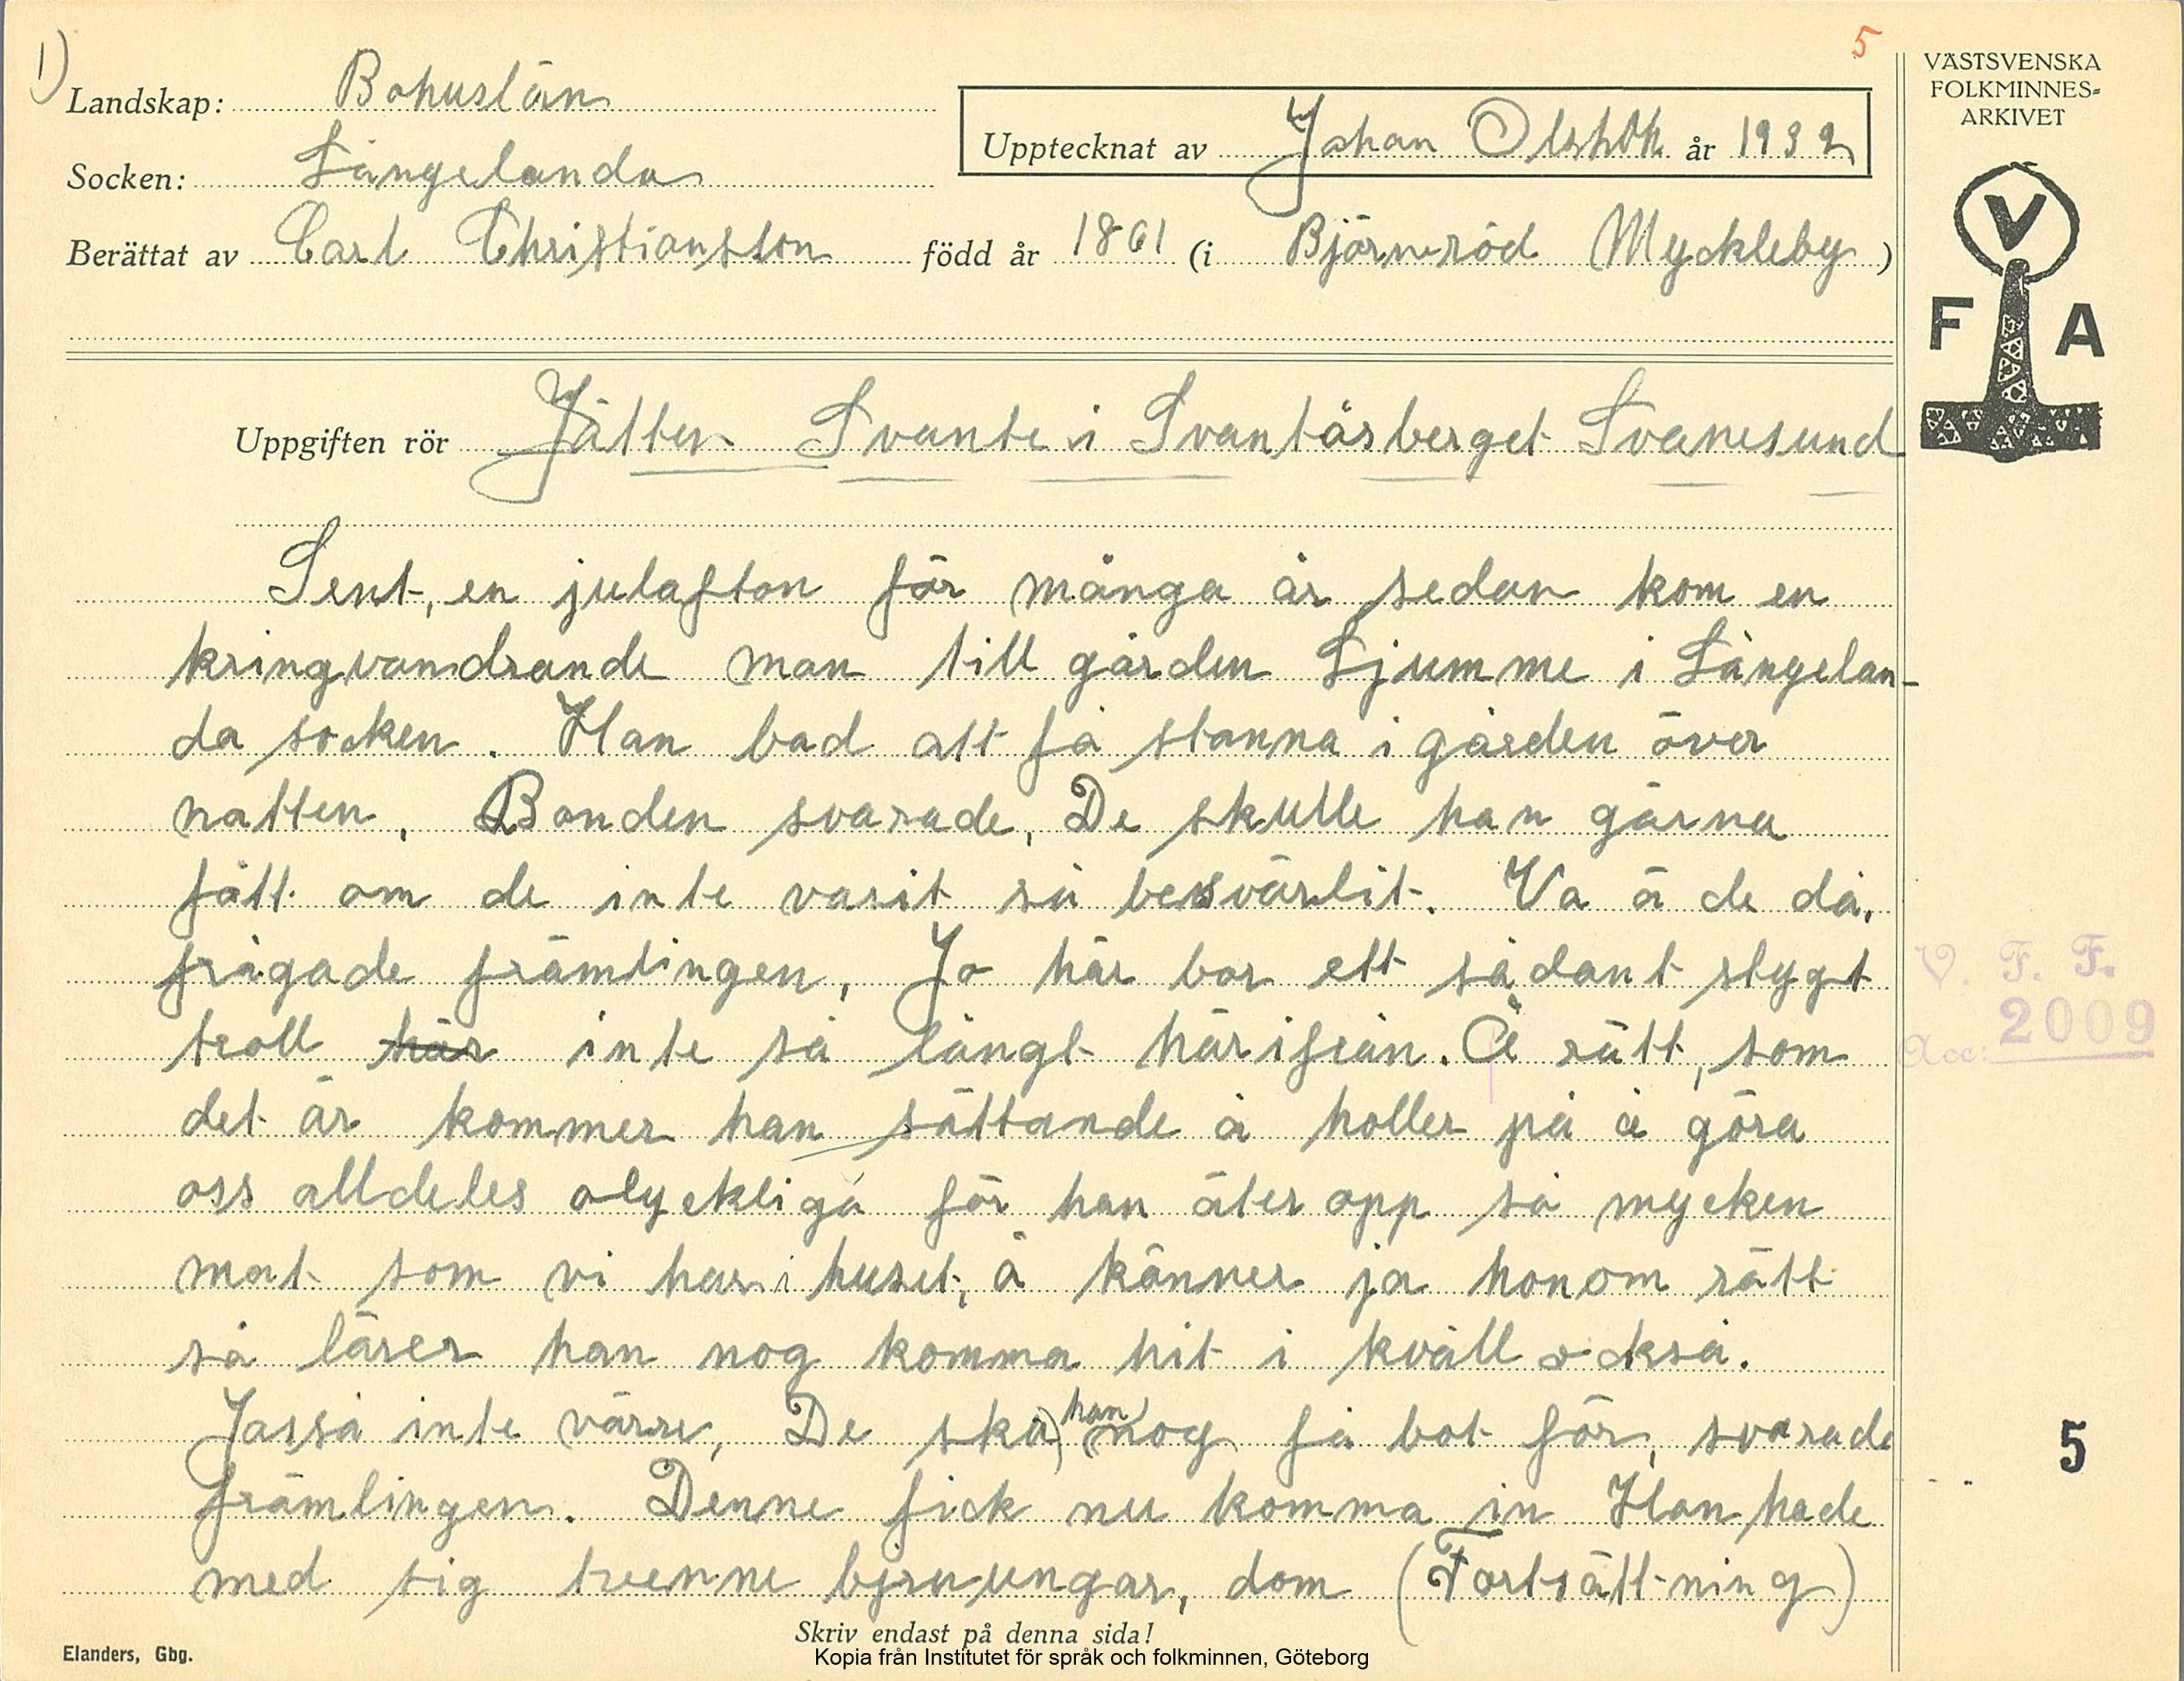 1)
5
Landskap: Bohuslän
Socken: Långelanda
Upptecknat av Johan år 1932
Berättat av Carl Christiansson född år 1861 (i Björneröd Myckleby)
VÄSTSVENSKA
FOLKMINNES-
ARKIVET
V
F A
Uppgiften rör Jätten Svante i Svantåsberget Svanesund
Sent, en julafton för många år sedan kom en
kringvandrande man till gården Ljumme i Långelan-
da socken. Han bad att få stanna i gården över
natten. Bonden svarade, De skulle han gärna
fått om de inte varit så besvärlit. Va ä de då,
frågade främlingen, Jo här bor ett sådant stygt
troll här inte så långt härifrån. Å rätt, som
det är kommer han sättande å holler på å göra
oss alldeles olyckliga för han äter opp så mycken
mat som vi har i huset, å känner ja honom rätt
så lärer han nog komma hit i kväll också.
Jasså inte värre, De ska han nog få bot för, svarade
främlingen. Denne fick nu komma in Han hade
med sig tvenne bjrnungar, dom (Fortsättning)
V. F. F.
Acc: 2009
5
Skriv endast på denna sida!
Elanders, Gbg.
Kopia från Institutet för språk och folkminnen, Göteborg